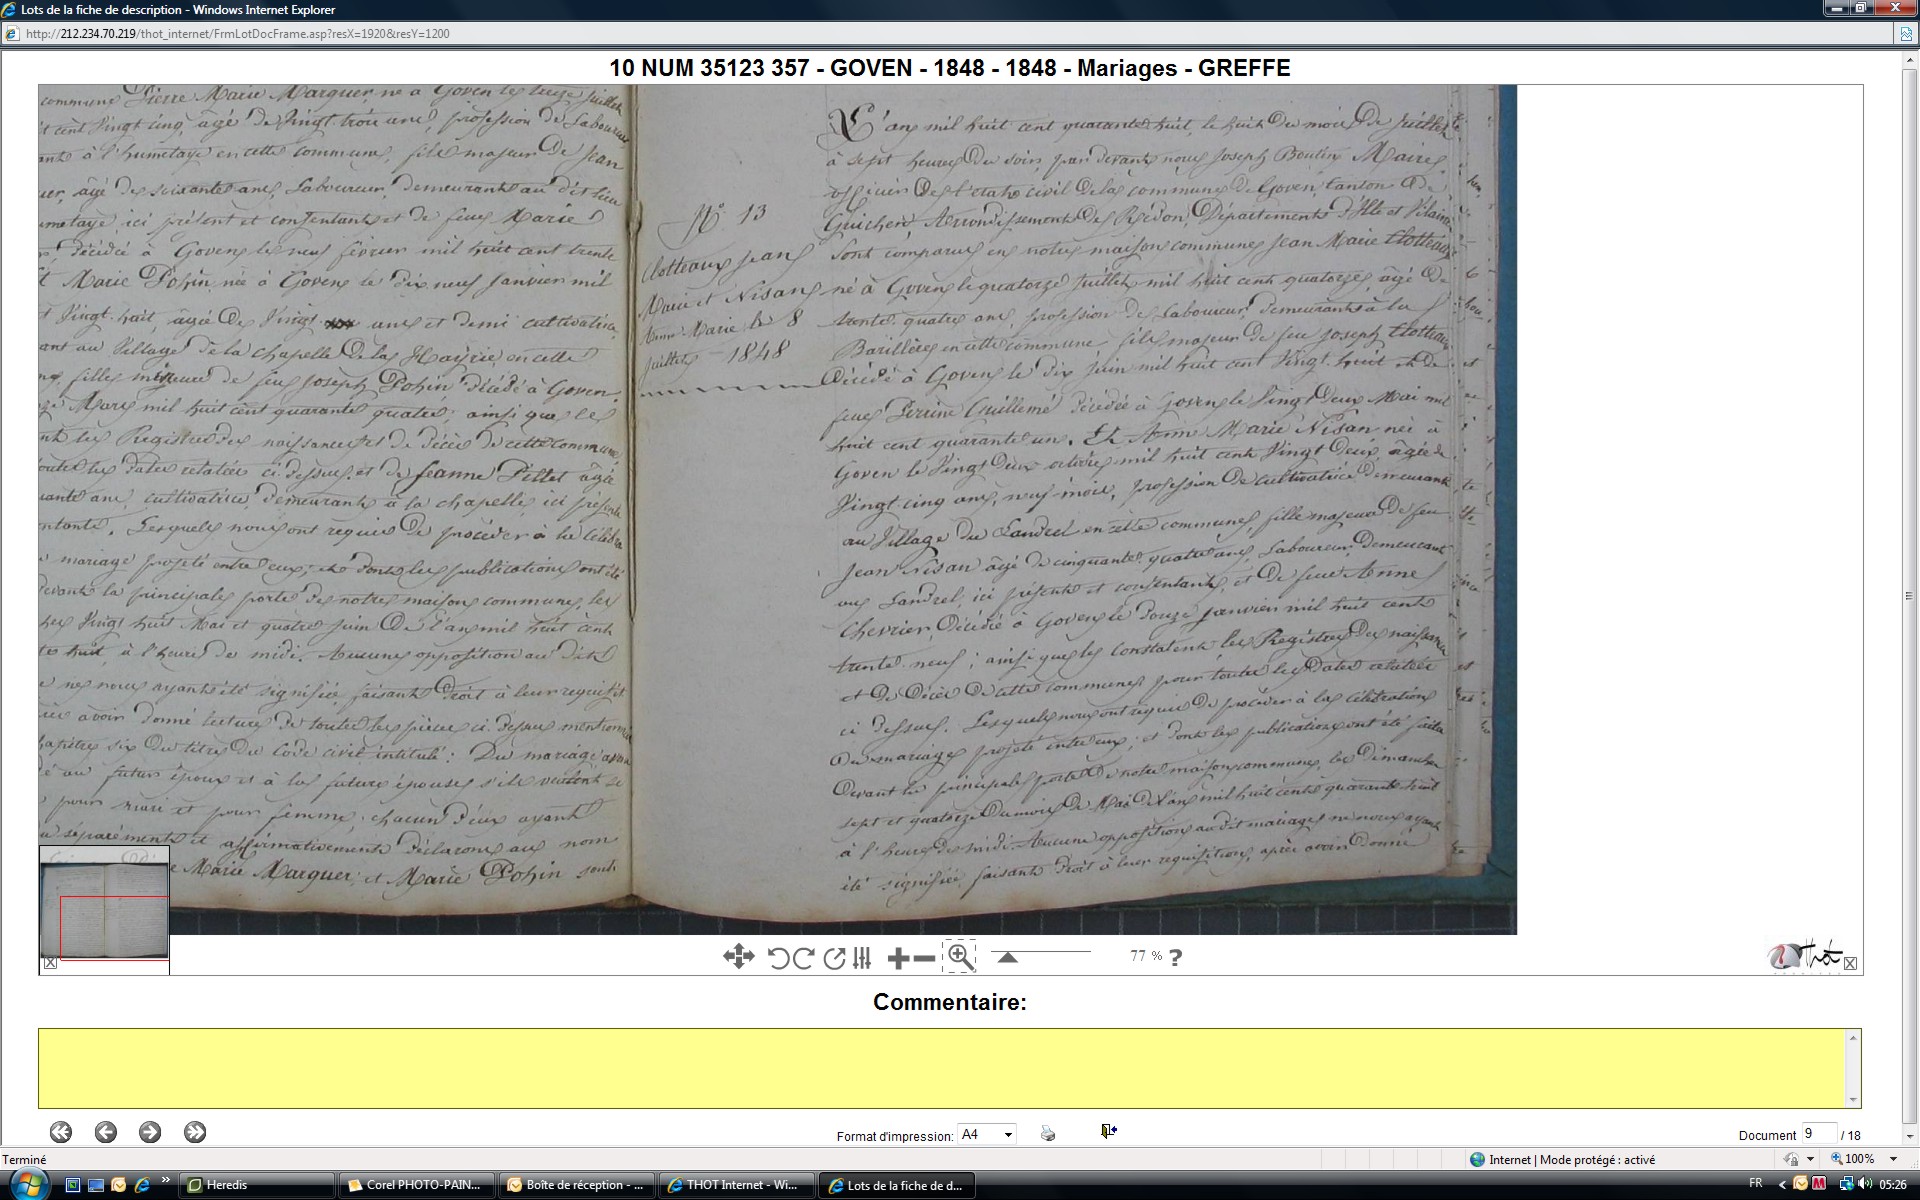 Lots de la fiche de description - Windows Internet Explorer
http://212.234.70.219/thot_internet/FrmLotDocFrame.asp?resX=1920&resY=1200
10 NUM 35123 357 - GOVEN - 1848 - 1848 - Mariages - GREFFE
commune Pierre Marie Marquer, né à Goven le juillet
cent Vingt cinq, âgé de Vingt trois ans, profession de Laboureur
à l'humelaye en cette commune, fils majeur de Jean
âgé de soixante ans, Laboureur, demeurant au dit lieu
ici présent et consentant et de feue Marie
décédée à Goven le neuf février mil huit cent trente
Marie Pohin née à Goven le dix neuf Janvier mil
Vingt huit, âgée de Vingt ans et demi cultivatrice
au Village de la chapelle de la en cette
fille mineure de feu Joseph Pohin, décédé à Goven
Mars mil huit cent quarante quatre; ainsi que le
les Registres des naissances et de décès de cette commune
toutes les dates relatées ci-dessus, et de Jeanne Pillet âgée
ans, cultivatrice, demeurant à la chapelle, ici présente
Lesquels nous ont requis de procéder à la célébra
mariage projeté entre eux; et dont les publications ont été
devant la principale porte de notre maison commune, les
Vingt huit Mai et quatre Juin de l'an mil huit cent
huit, à l'heure de midi. Aucune opposition au dit
ne nous ayant été signifiée, faisant droit à leur requisit
avoir donné lecture de toutes les pièces ci-dessus mentionn
chapitre six du titre du Code civil intitulé: Du mariage avons
au futur époux et à la future épouse s'ils veulent se
pour mari et pour femme; chacun d'eux ayant
séparément et affirmativement déclarons au nom
Marie Marquer et Marie Pohin sont
N° 13
Clotteaux Jean
Marie et Nisan
Anne Marie le 8
Juillet 1848
L'an mil huit cent quarante huit, le huit du mois de Juillet
à sept heures du soir, par devant nous Joseph Boutin Maire,
officier de l'état civil de la commune de Goven, Canton de
Guichen, Arrondissement de Redon, Département d'Ille et Vilaine
Sont comparus en notre maison commune Jean Marie Clotteaux
né à Goven le quatorze Juillet mil huit cent quatorze, âgé de
trente quatre ans, profession de Laboureur, demeurant à la
Barillère en cette commune, fils majeur de feu Joseph Clotteaux
décédé à Goven le dix Juin mil huit cent Vingt huit et de
feue Perrine Guillemé décédée à Goven le Vingt deux Mai mil
huit cent quarante un. Et Anne Marie Nisan née à
Goven le Vingt deux octobre mil huit cent Vingt deux, âgée de
Vingt cinq ans, neuf mois, profession de cultivatrice demeurant
au Village du Landrel en cette commune, fille majeure de feu
Jean Nisan âgé de cinquante quatre ans, Laboureur, demeurant
au Landrel, ici présent et consentant, et de feue Anne
Chevrier, décédée à Goven le douze janvier mil huit cent
trente neuf; ainsi que les constatent les Registres des naissances
et de Décès de cette commune pour toutes les dates relatées
ci dessus. Lesquels nous ont requis de procéder à la célébration
du mariage projeté entre eux; et dont les publications ont été faites
devant la principale porte de notre maison commune, les dimanches
sept et quatorze du mois de Mai de l'an mil huit cent quarante huit
à l'heure de midi. Aucune opposition au dit mariage ne nous ayant
été signifiée faisant droit à leur requisition, après avoir donné
77 % ?
Thot
Commentaire:
Format d'impression: A4
Document 9 / 18
Terminé
Internet | Mode protégé : activé
100%
Heredis
Corel PHOTO-PAIN...
Boîte de réception - ...
THOT Internet - Wi...
Lots de la fiche de d...
FR
05:26